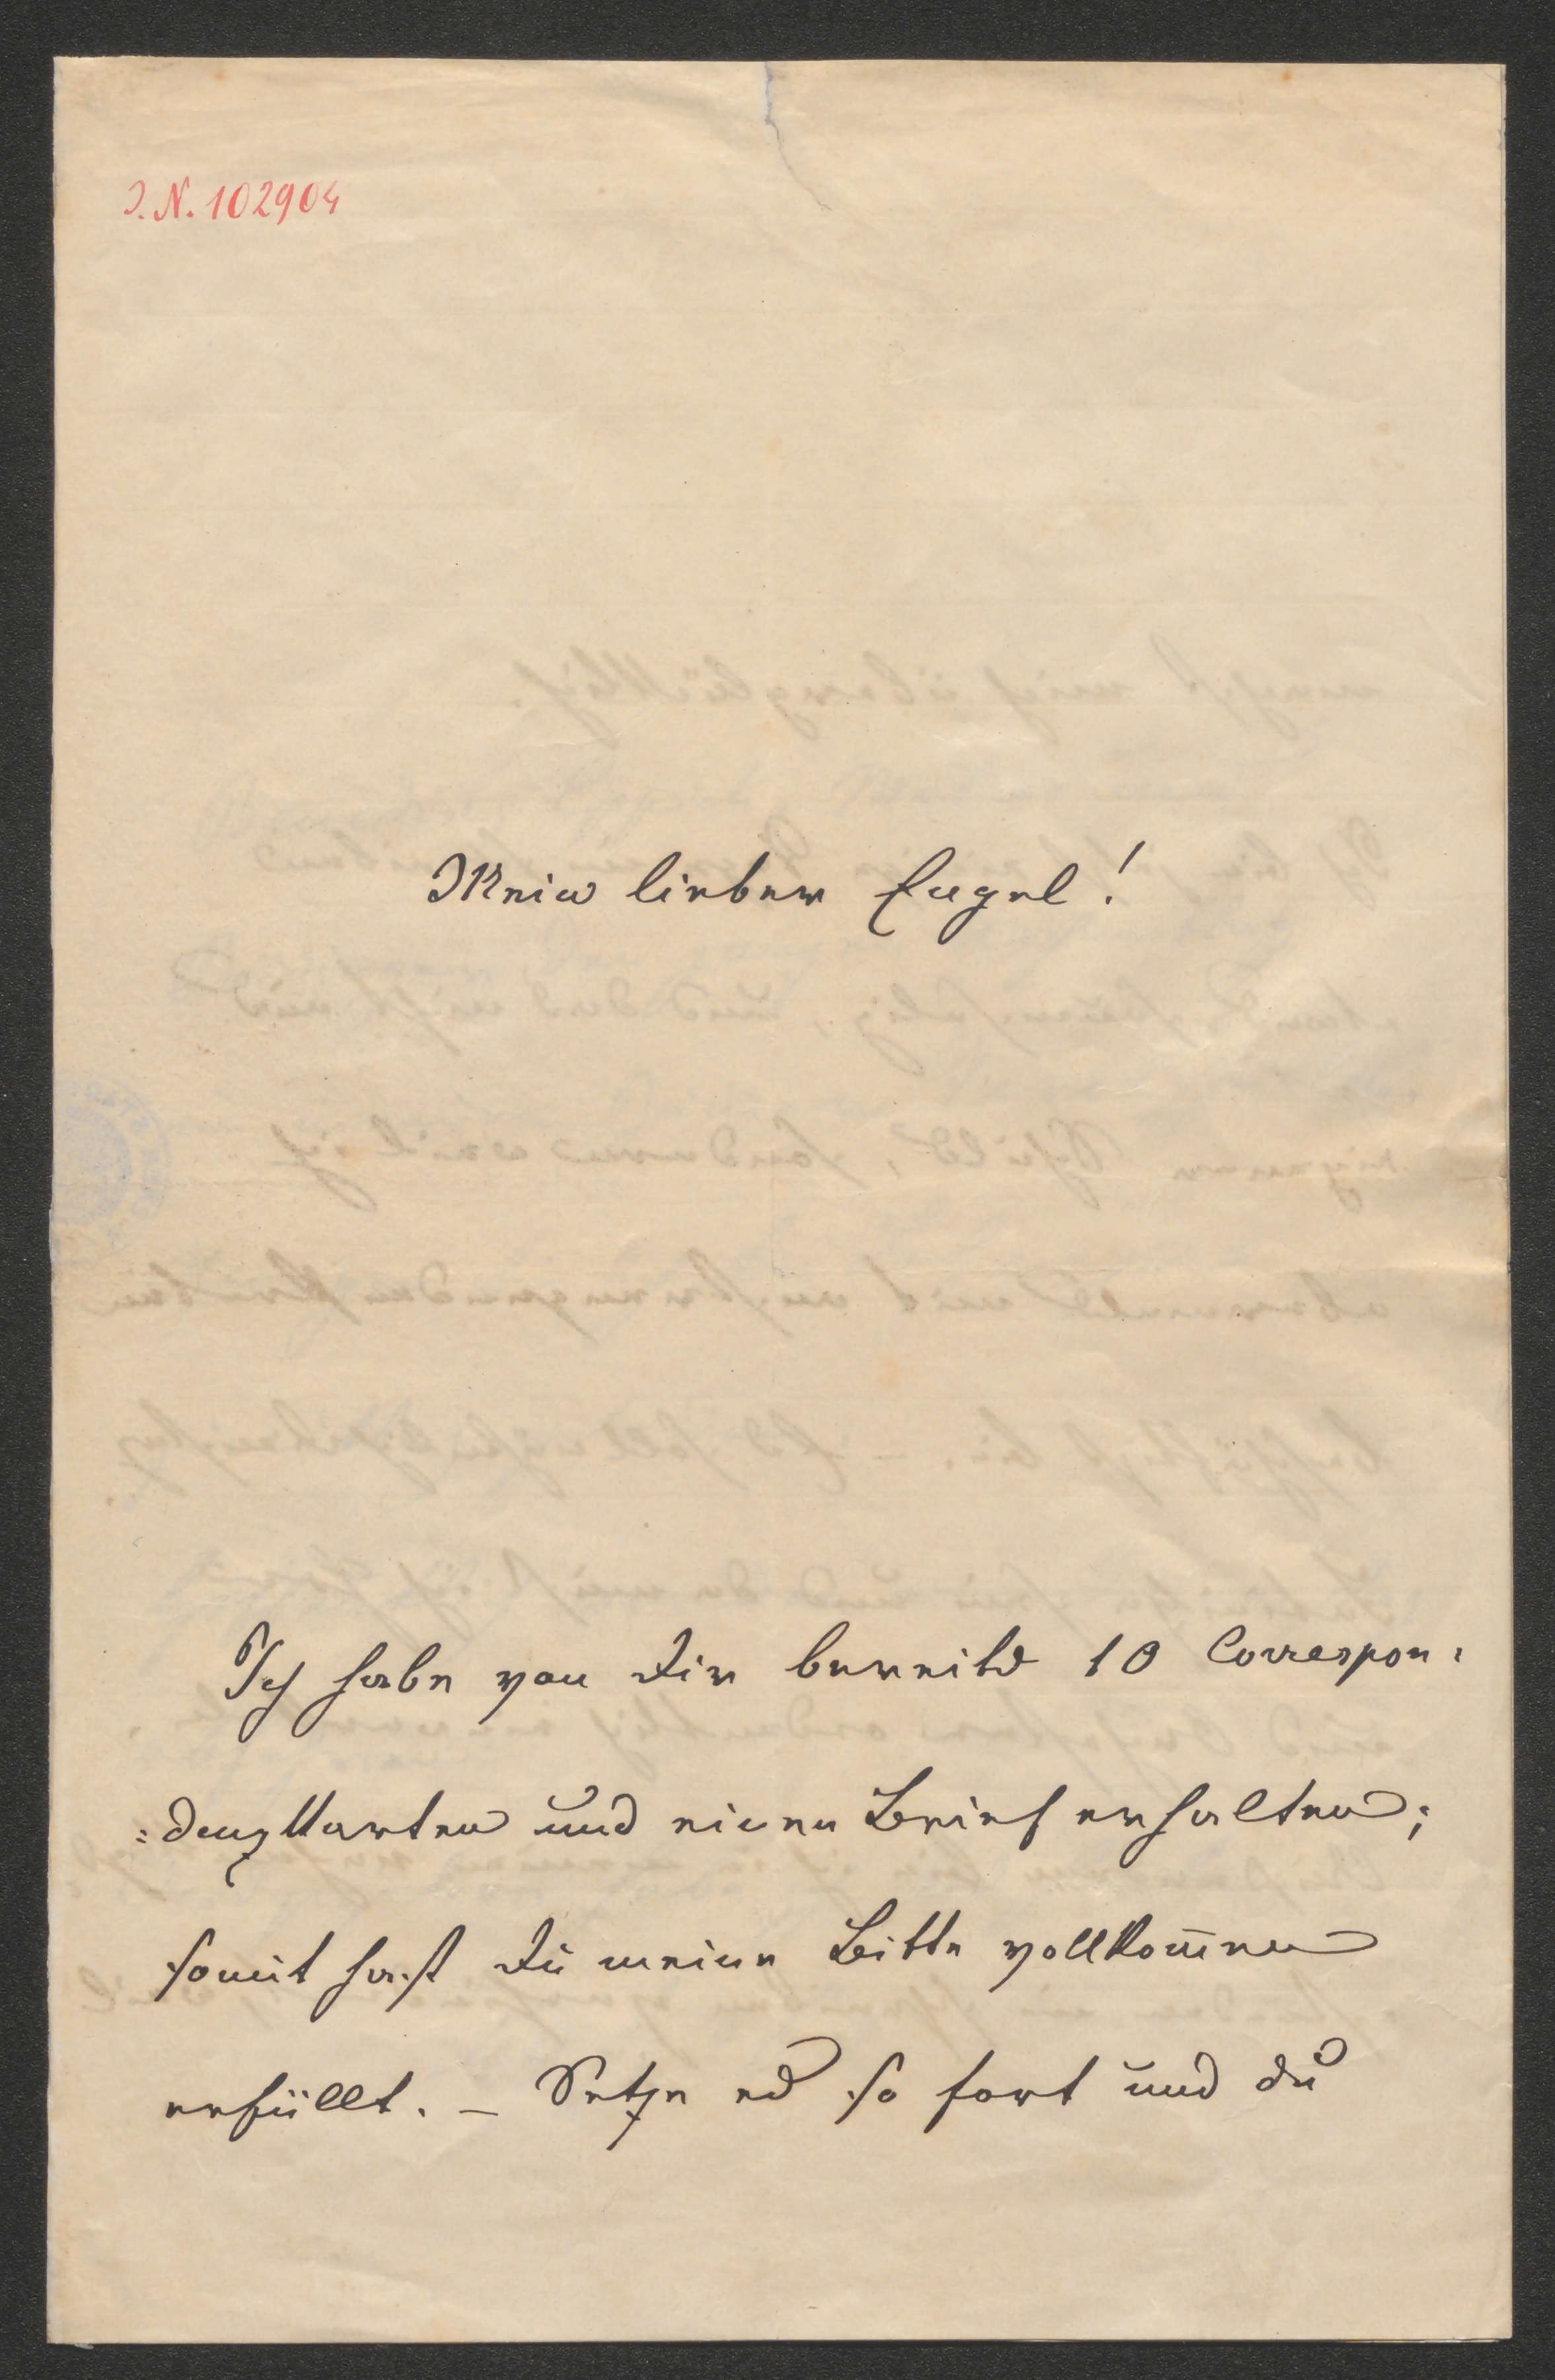 I.N. 102904
Mein lieber Engel!
Ich habe von Dir bereits 10 Correspon:
:denzkarten und einen Brief erhalten;
somit hast Du meine Bitte vollkom̅en
erfüllt. – Setze es so fort und du